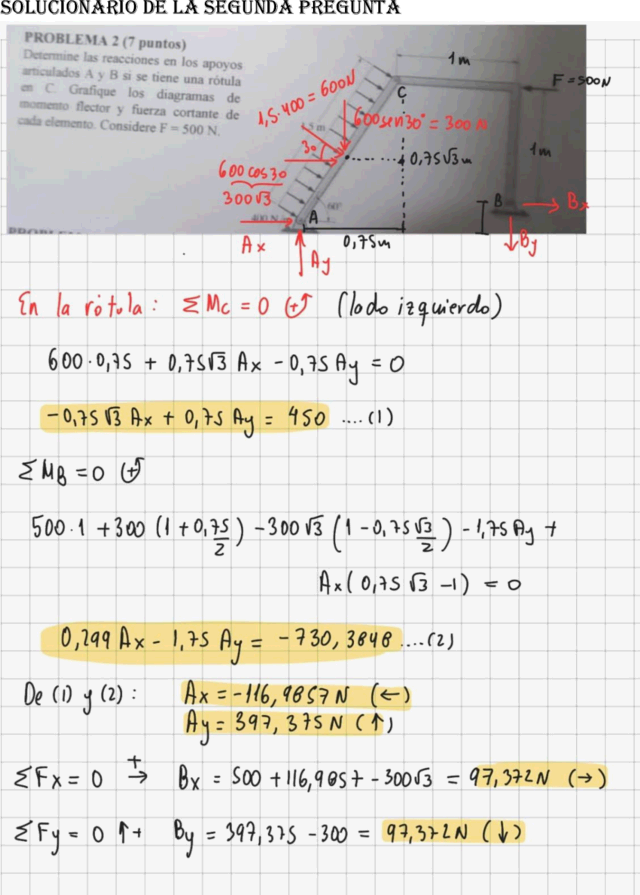 SOLUCIONARIO DE LA SEGUNDA PREGUNTA
PROBLEMA 2 (7 puntos)
Determine las reacciones en los apoyos
articulados A y B si se tiene una rótula
en C. Grafique los diagramas de
momento flector y fuerza cortante de
cada elemento. Considere F = 500 N.
1m
F = 500N
C
1,5·400 = 600N
600sen30° = 300 N
1,5 m
30
0,75√3m
1m
600 cos30
300√3
60°
B
Bx
400 N
A
Ax
0,75m
By
Ay
En la rótula: ΣMc = 0 (+↺) (lado izquierdo)
600·0,75 + 0,75√3 Ax - 0,75 Ay = 0
-0,75√3 Ax + 0,75 Ay = 450 ....(1)
ΣMB = 0 (+↺)
500·1 + 300 (1 + 0,75/2) - 300√3 (1 - 0,75√3/2) - 1,75 Ay +
Ax(0,75√3 - 1) = 0
0,299 Ax - 1,75 Ay = -730,3848 ....(2)
De (1) y (2): Ax = -116,9857 N (←)
Ay = 397,375 N (↑)
ΣFx = 0 +→ Bx = 500 + 116,9857 - 300√3 = 97,372N (→)
ΣFy = 0 ↑+ By = 397,375 - 300 = 97,372N (↓)